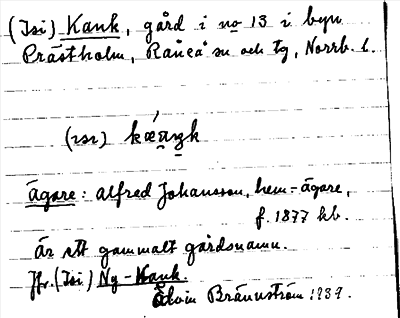 (Isi) Kank, gård i no 13 i byn
Prästholm, Råneå sn och tg, Norrb. l.
(ɪsɪ)
ägare: Alfred Johansson, hem.-ägare,
f. 1877 hb.
är ett gammalt gårdsnamn.
Jfr. (Isi) Ny-Kank.
Edvin Brännström 1939.